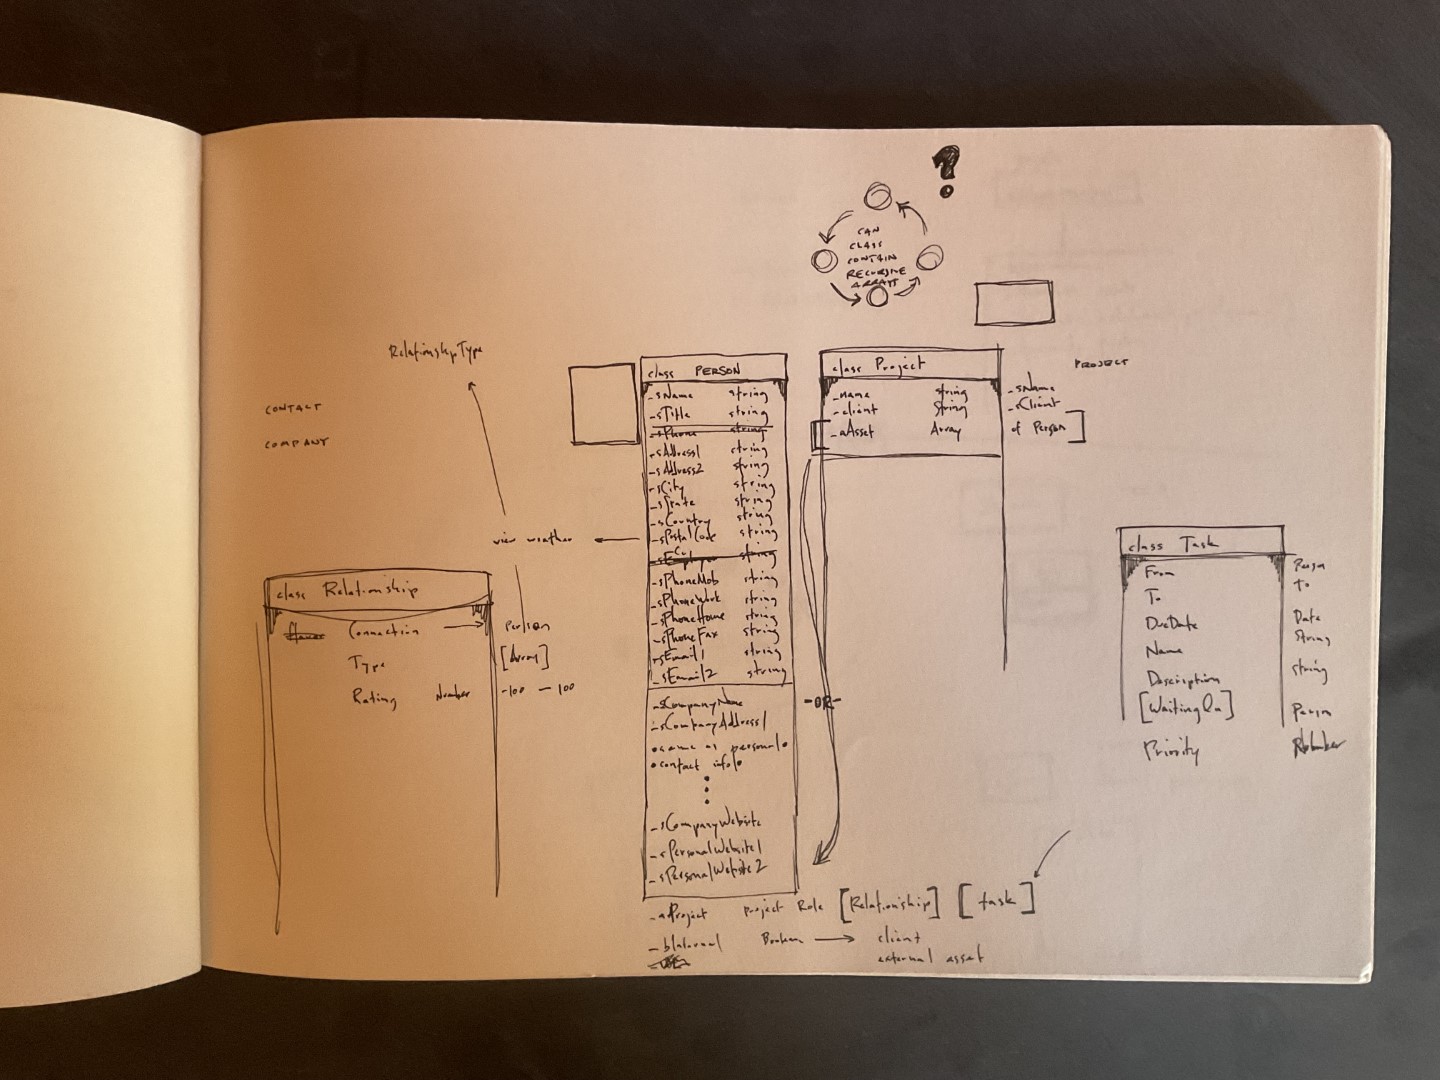 ?
CAN
CLASS
CONTAIN
RECURSIVE
ARRAYS
RelationshipType
CONTACT
COMPANY
view weather
class Relationship
Connection Person
Type [Array]
Rating Number -100 — 100
class PERSON
_sName string
_sTitle string
_sPhone string
_sAddress1 string
_sAddress2 string
_sCity string
_sState string
_sCountry string
_sPostalCode string
string
_sPhoneMob string
_sPhoneWork string
_sPhoneHome string
_sPhoneFax string
_sEmail1 string
_sEmail2 string
_sCompanyName
_sCompanyAddress1
•same as personal•
•contact info•
_sCompanyWebsite
_sPersonalWebsite1
_sPersonalWebsite2
_aProject Project Role [Relationship] [task]
_bInternal Boolean client
external asset
-OR-
class Project
_name string _sName
_client String _sClient
_aAsset Array of Person]
PROJECT
class Task
From Person
To To
DueDate Date
Name String
Description string
[WaitingOn] Person
Priority Number